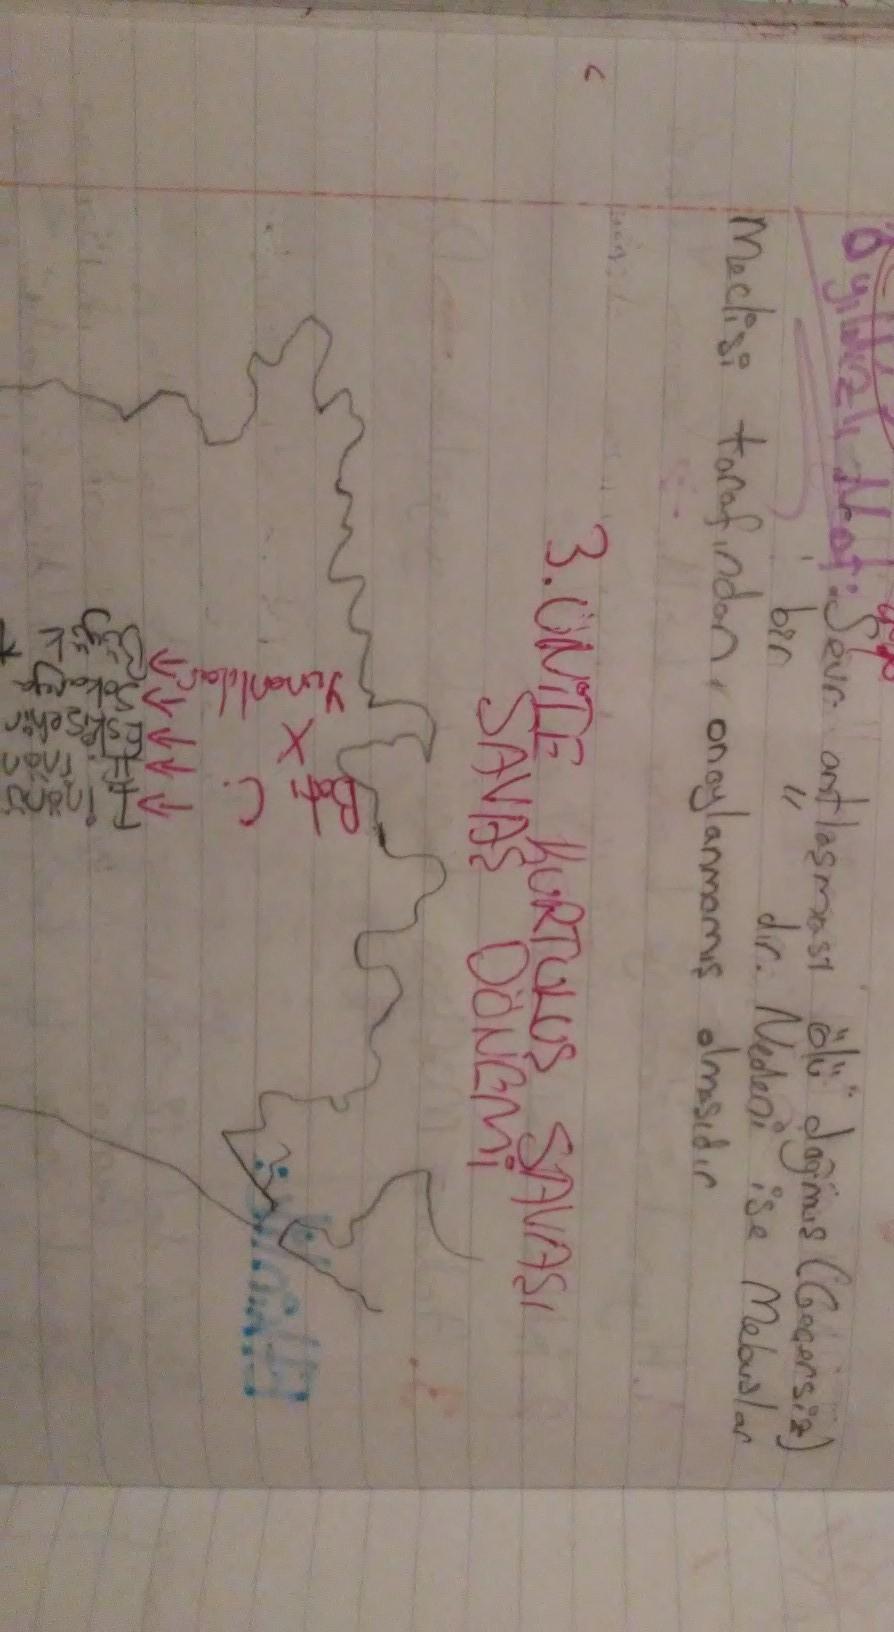 Yıldızlı Not: Sevr antlaşması ölü doğmuş (Geçersiz)
bir " dir. Nedeni ise Mebuslar
Meclisi tarafından onaylanmamış olmasıdır
3. ÜNİTE KURTULUŞ SAVAŞI
SAVAŞ DÖNEMİ
Batı C.
X
Yunanlılar
I. İnönü
II. İnönü
Eskişehir
Sakarya